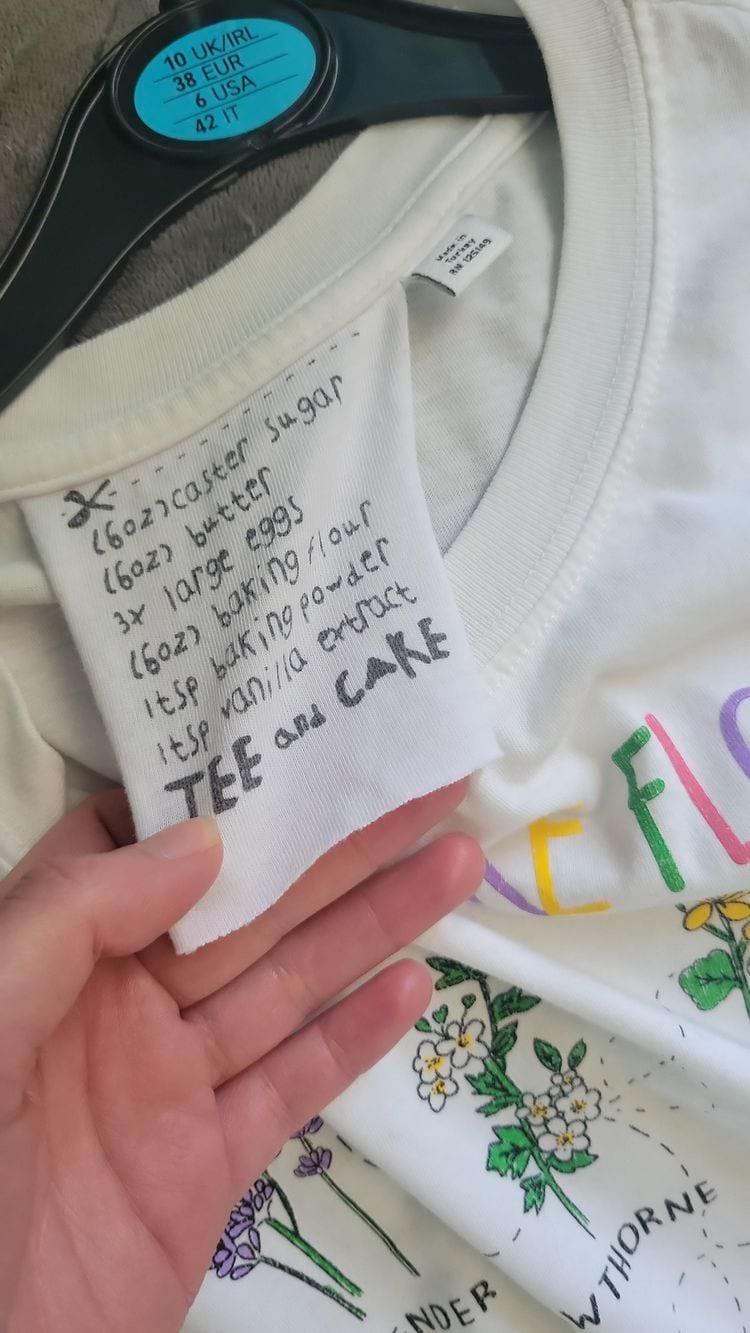 10 UK/IRL
38 EUR
6 USA
42 IT
Made in
Turkey
RN 125149
(6oz) caster sugar
(6oz) butter
3x large eggs
(6oz) baking flour
1tsp baking powder
1tsp vanilla extract
TEE and CAKE
EFLS
NDER
WTHORNE